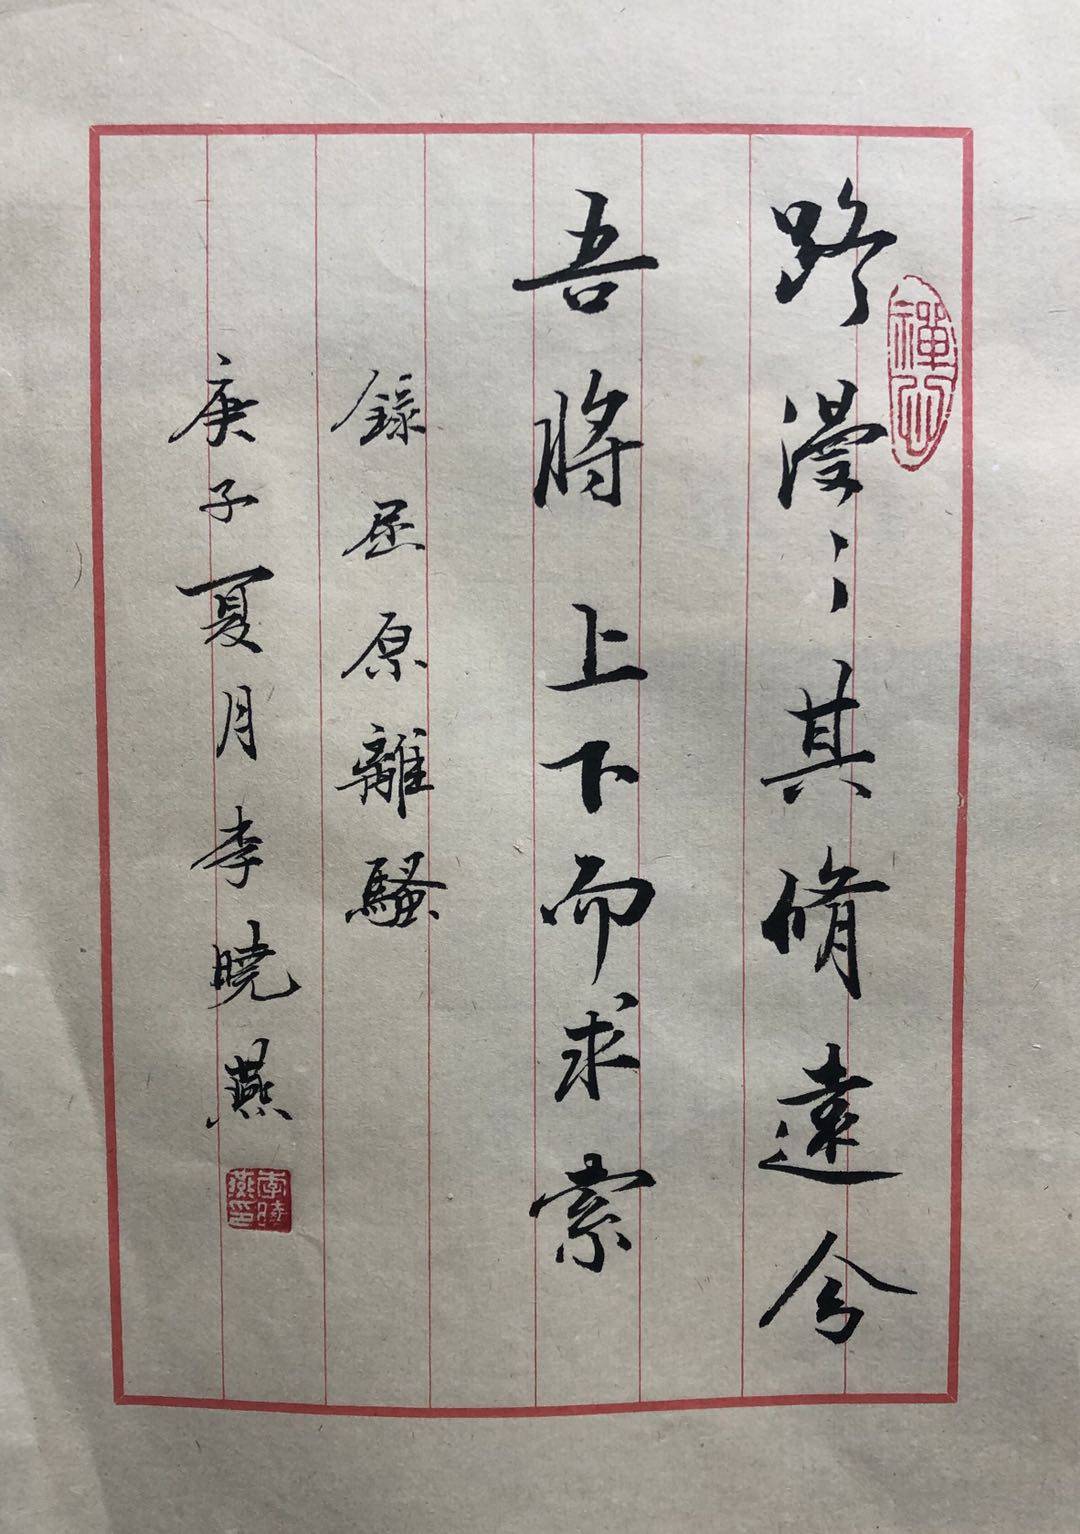 路漫〻其脩遠兮
吾將上下而求索
錄屈原離騷
庚子夏月李曉燕
禪心
李曉燕印